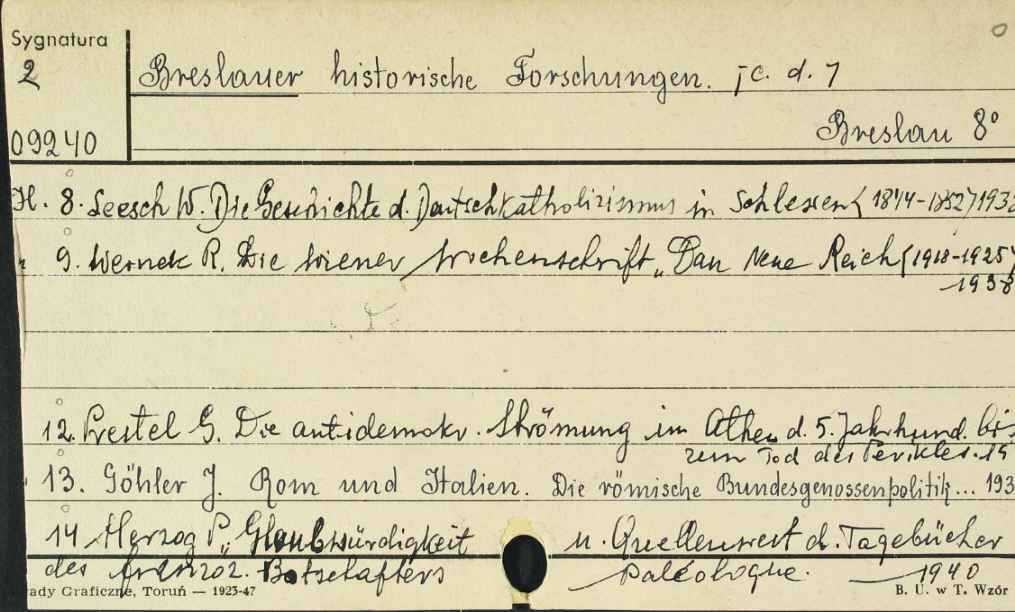 Sygnatura
2
Breslauer historische Forschungen. [c. d. 7
Breslau 8°
09240
H. 8. Leesch W. Die Geschichte d. Deutschkatholizismus in Schlesien (1844-1852) 1938
9. Wernek R. Die Wiener Wochenschrift "Das Neue Reich (1918-1925)
-1938
12. Prestel G. Die antidemokr. Strömung im Athen d. 5. Jahrhund. bis
zum Tod des Perikles. 19
13. Göhler J. Rom und Italien. Die römische Bundesgenossenpolitik... 193
14 Herzog P. Glaubwürdigkeit u. Quellenwert d. Tagebücher
des französ. Botschafters Paléologue. 1940
ady Graficzne, Toruń — 1923-47
B. U. w T. Wzór